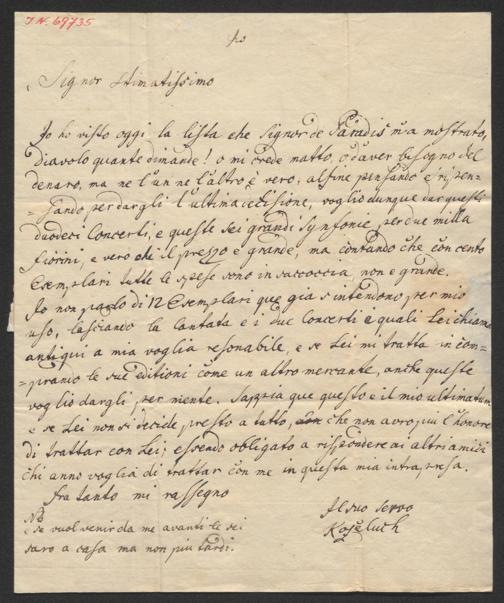 I N. 69735
Signor Stimatissimo
Jo ho visto oggi la lista che Signor de Paradis m'a mostrato,
Diavolo quante dimande! o mi crede matto, o d'aver bisogno del
denaro, ma ne l'un ne l'altro è vero; alfine pensando e ripen-
=sando, per dargli l'ultima decisione, voglio dunque dar questi
duodeci Concerti, e queste Sei grandi Synfonie, per due milla
fiorini, e vero che il prezzo è grande, ma contando che con cento
Esemplari tutte le spese sono in saccoccia, non è grande.
Jo non parlo di 12 Esemplari que gia s'intendono per mio
uso, lasciando la Cantata e i due Concerti e quali Lei chiama
antiqui a mia voglia resonabile, e se Lei mi tratta in com-
=prando le sue editioni come un altro mercante, anche queste
voglio dargli per niente. Sappia que questo e il mio ultimatum
e se Lei non si decide presto a tutto, che non avro piu l'honore
di trattar con Lei; essendo obligato a rispondere ai altri amici
chi anno voglia di trattar con me in questa mia intrapresa.
fra tanto mi rassegno
Il suo servo
Koželuch
NB
e se vuol venir da me avanti le sei
saro a casa ma non piu tardi.